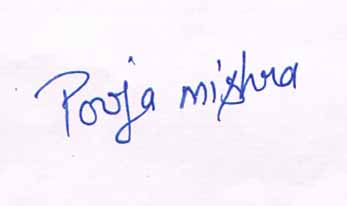 Pooja mishra